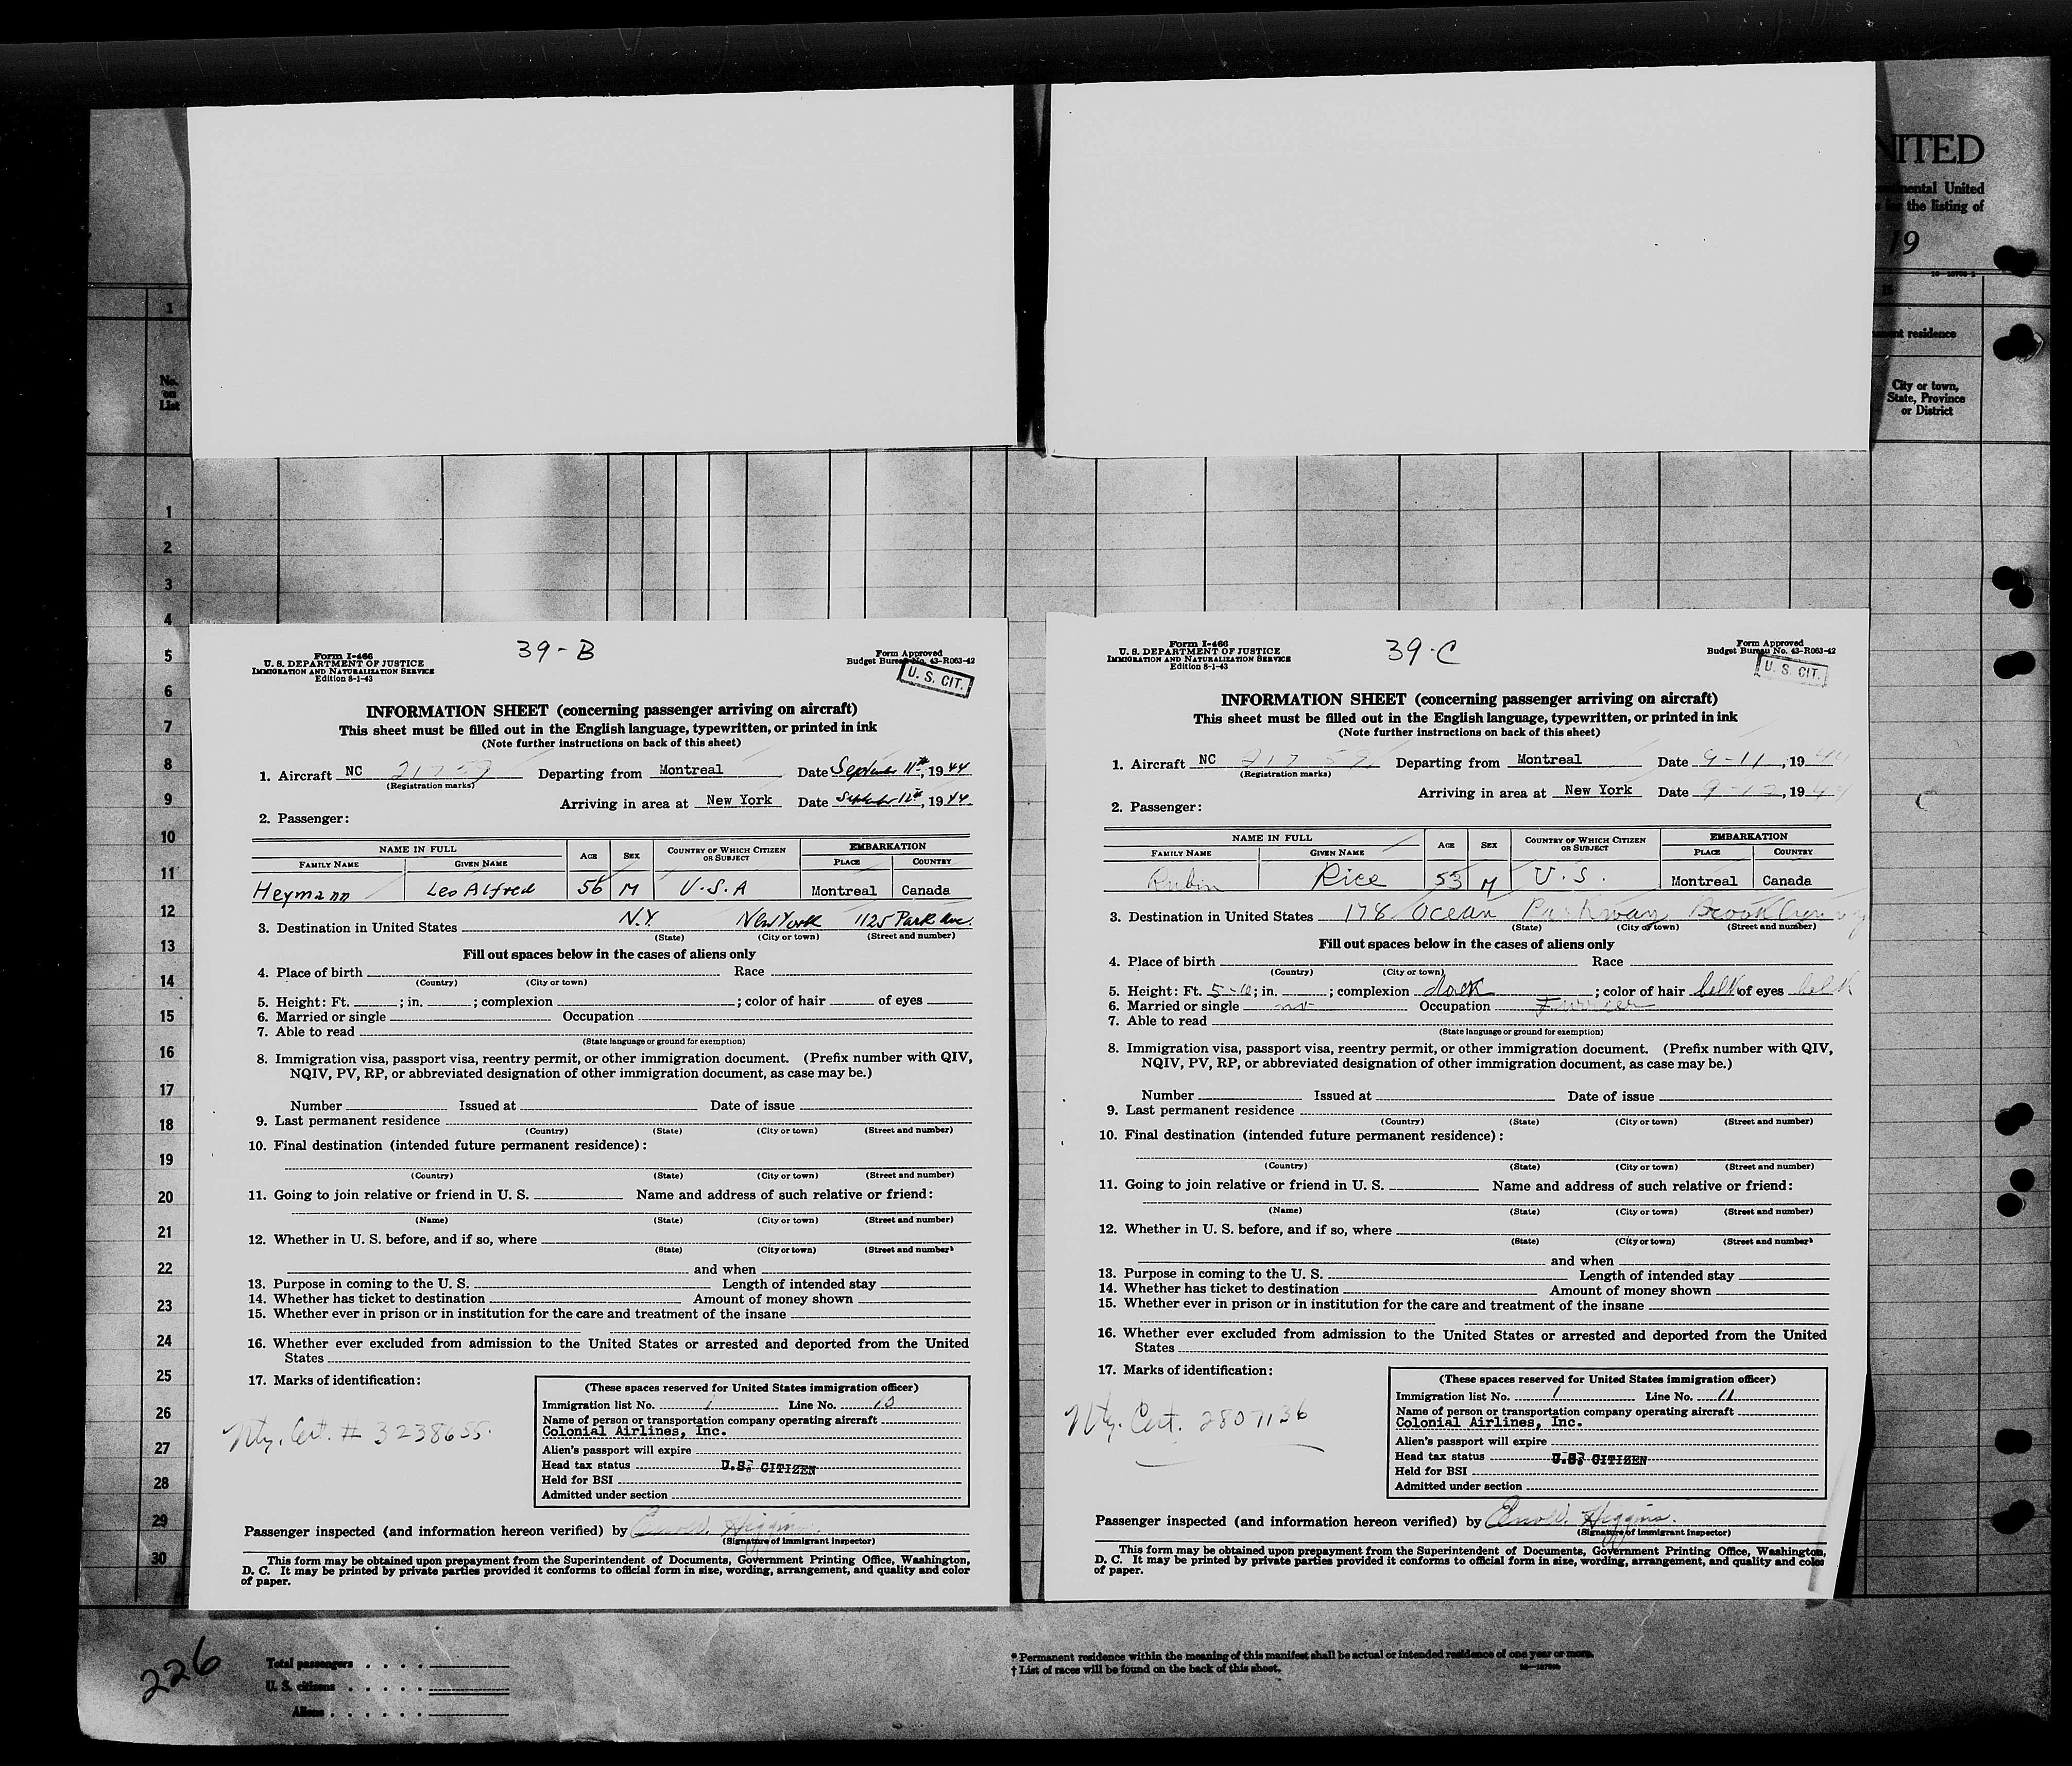 NITED
ntinental United
s for the listing of
19
16—18706-1
1
15
No.
on
List
nent residence
City or town,
State, Province
or District
1
2
3
4
5
6
7
8
9
10
11
12
13
14
15
16
17
18
19
20
21
22
23
24
25
26
27
28
29
30
39-B
Form I-466
U. S. DEPARTMENT OF JUSTICE
IMMIGRATION AND NATURALIZATION SERVICE
Edition 8-1-43
Form Approved
Budget Bureau No. 43-R063-42
U. S. CIT.
INFORMATION SHEET (concerning passenger arriving on aircraft)
This sheet must be filled out in the English language, typewritten, or printed in ink
(Note further instructions on back of this sheet)
1. Aircraft NC 21759 Departing from Montreal Date September 11th, 1944
(Registration marks)
Arriving in area at New York Date September 12th, 1944.
2. Passenger:
NAME IN FULL AGE SEX COUNTRY OF WHICH CITIZEN OR SUBJECT EMBARKATION
FAMILY NAME GIVEN NAME PLACE COUNTRY
Heymann Leo Alfred 56 M U.S.A Montreal Canada
3. Destination in United States N.Y. New York 1125 Park Ave.
(State) (City or town) (Street and number)
Fill out spaces below in the cases of aliens only
4. Place of birth Race
(Country) (City or town)
5. Height: Ft. ; in. ; complexion ; color of hair of eyes
6. Married or single Occupation
7. Able to read
(State language or ground for exemption)
8. Immigration visa, passport visa, reentry permit, or other immigration document. (Prefix number with QIV,
NQIV, PV, RP, or abbreviated designation of other immigration document, as case may be.)
Number Issued at Date of issue
9. Last permanent residence
(Country) (State) (City or town) (Street and number)
10. Final destination (intended future permanent residence):
(Country) (State) (City or town) (Street and number)
11. Going to join relative or friend in U. S. Name and address of such relative or friend:
(Name) (State) (City or town) (Street and number)
12. Whether in U. S. before, and if so, where
(State) (City or town) (Street and number)
and when
13. Purpose in coming to the U. S. Length of intended stay
14. Whether has ticket to destination Amount of money shown
15. Whether ever in prison or in institution for the care and treatment of the insane
16. Whether ever excluded from admission to the United States or arrested and deported from the United
States
17. Marks of identification:
(These spaces reserved for United States immigration officer)
Immigration list No. 1 Line No. 13
Name of person or transportation company operating aircraft
Colonial Airlines, Inc.
Alien's passport will expire
Head tax status U.S. CITIZEN
Held for BSI
Admitted under section
Nty. Cert. # 3238655.
Passenger inspected (and information hereon verified) by Higgins.
(Signature of immigrant inspector)
This form may be obtained upon prepayment from the Superintendent of Documents, Government Printing Office, Washington,
D. C. It may be printed by private parties provided it conforms to official form in size, wording, arrangement, and quality and color
of paper.
39-C
Form I-466
U. S. DEPARTMENT OF JUSTICE
IMMIGRATION AND NATURALIZATION SERVICE
Edition 8-1-43
Form Approved
Budget Bureau No. 43-R063-42
U. S. CIT.
INFORMATION SHEET (concerning passenger arriving on aircraft)
This sheet must be filled out in the English language, typewritten, or printed in ink
(Note further instructions on back of this sheet)
1. Aircraft NC 21759 Departing from Montreal Date 9-11, 1944
(Registration marks)
Arriving in area at New York Date 9-12, 1944
2. Passenger:
NAME IN FULL AGE SEX COUNTRY OF WHICH CITIZEN OR SUBJECT EMBARKATION
FAMILY NAME GIVEN NAME PLACE COUNTRY
Rubin Rice 53 M U.S. Montreal Canada
3. Destination in United States 178 Ocean Parkway
(State) (City or town) (Street and number)
Fill out spaces below in the cases of aliens only
4. Place of birth Race
(Country) (City or town)
5. Height: Ft. 5-6; in. ; complexion dark ; color of hair blk of eyes blk
6. Married or single Occupation Furrier
7. Able to read
(State language or ground for exemption)
8. Immigration visa, passport visa, reentry permit, or other immigration document. (Prefix number with QIV,
NQIV, PV, RP, or abbreviated designation of other immigration document, as case may be.)
Number Issued at Date of issue
9. Last permanent residence
(Country) (State) (City or town) (Street and number)
10. Final destination (intended future permanent residence):
(Country) (State) (City or town) (Street and number)
11. Going to join relative or friend in U. S. Name and address of such relative or friend:
(Name) (State) (City or town) (Street and number)
12. Whether in U. S. before, and if so, where
(State) (City or town) (Street and number)
and when
13. Purpose in coming to the U. S. Length of intended stay
14. Whether has ticket to destination Amount of money shown
15. Whether ever in prison or in institution for the care and treatment of the insane
16. Whether ever excluded from admission to the United States or arrested and deported from the United
States
17. Marks of identification:
(These spaces reserved for United States immigration officer)
Immigration list No. 1 Line No. 11
Name of person or transportation company operating aircraft
Colonial Airlines, Inc.
Alien's passport will expire
Head tax status U.S. CITIZEN
Held for BSI
Admitted under section
Nty. Cert. 2807136
Passenger inspected (and information hereon verified) by Higgins.
(Signature of immigrant inspector)
This form may be obtained upon prepayment from the Superintendent of Documents, Government Printing Office, Washington,
D. C. It may be printed by private parties provided it conforms to official form in size, wording, arrangement, and quality and color
of paper.
226
Total passengers
U. S. citizens
Aliens
* Permanent residence within the meaning of this manifest shall be actual or intended residence of one year or more.
† List of races will be found on the back of this sheet.